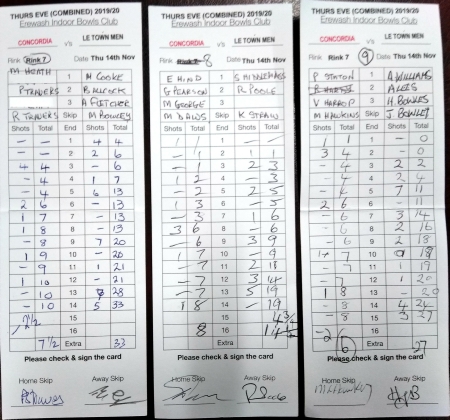 THURS EVE (COMBINED) 2019/20
Erewash Indoor Bowls Club
CONCORDIA v's LE TOWN MEN
Rink Rink 7 Date Thu 14th Nov
M HEATH 1 M COOKE
P TRADERS 2 B ALCOCK
3 A FLETCHER
Skip M ROWLEY
Shots Total End Shots Total
– – 1 4 4
– – 2 2 6
4 4 3 – 6
– 4 4 1 7
– 4 5 6 13
2 6 6 – 13
1 7 7 – 13
1 8 8 – 13
– 8 9 7 20
1 9 10 – 20
– 9 11 1 21
1 10 12 – 21
– 10 13 7 28
– 10 14 5 33
15
16
7 1/2 Extra 33
Please check & sign the card
Home Skip Away Skip
THURS EVE (COMBINED) 2019/20
Erewash Indoor Bowls Club
CONCORDIA v's LE TOWN MEN
Rink 8 Date Thu 14th Nov
E HIND 1
G PEARSON 2 R POOLE
M GEORGE 3
M DAWS Skip K STRAW
Shots Total End Shots Total
1 1 1 – –
– 1 2 1 1
– 1 3 2 3
1 2 4 – 3
– 2 5 2 5
1 3 6 – 5
– 3 7 1 6
3 6 8 – 6
– 6 9 3 9
1 7 10 – 9
– 7 11 2 11
– 7 12 3 14
– 7 13 5 19
1 8 14 – 19
15
8 16
Extra
Please check & sign the card
Home Skip Away Skip
THURS EVE (COMBINED) 2019/20
Erewash Indoor Bowls Club
CONCORDIA v's LE TOWN MEN
Rink Rink 7 9 Date Thu 14th Nov
P STATON 1 A WILLIAMS
2
V HARROP 3 H BOWLES
M HAWKINS Skip J BOWLEY
Shots Total End Shots Total
1 1 1 – 0
3 4 2 – 0
– 4 3 2 2
– 4 4 2 4
5 7 11
6 – 11
– 6 7 3 14
– 6 8 2 16
– 6 9 2 18
1 7 10 18
– 7 11 1 19
– 7 12 1 20
1 8 13 – 20
– 8 14 4 24
– 8 15 3 27
16
6 Extra 27
Please check & sign the card
Home Skip Away Skip